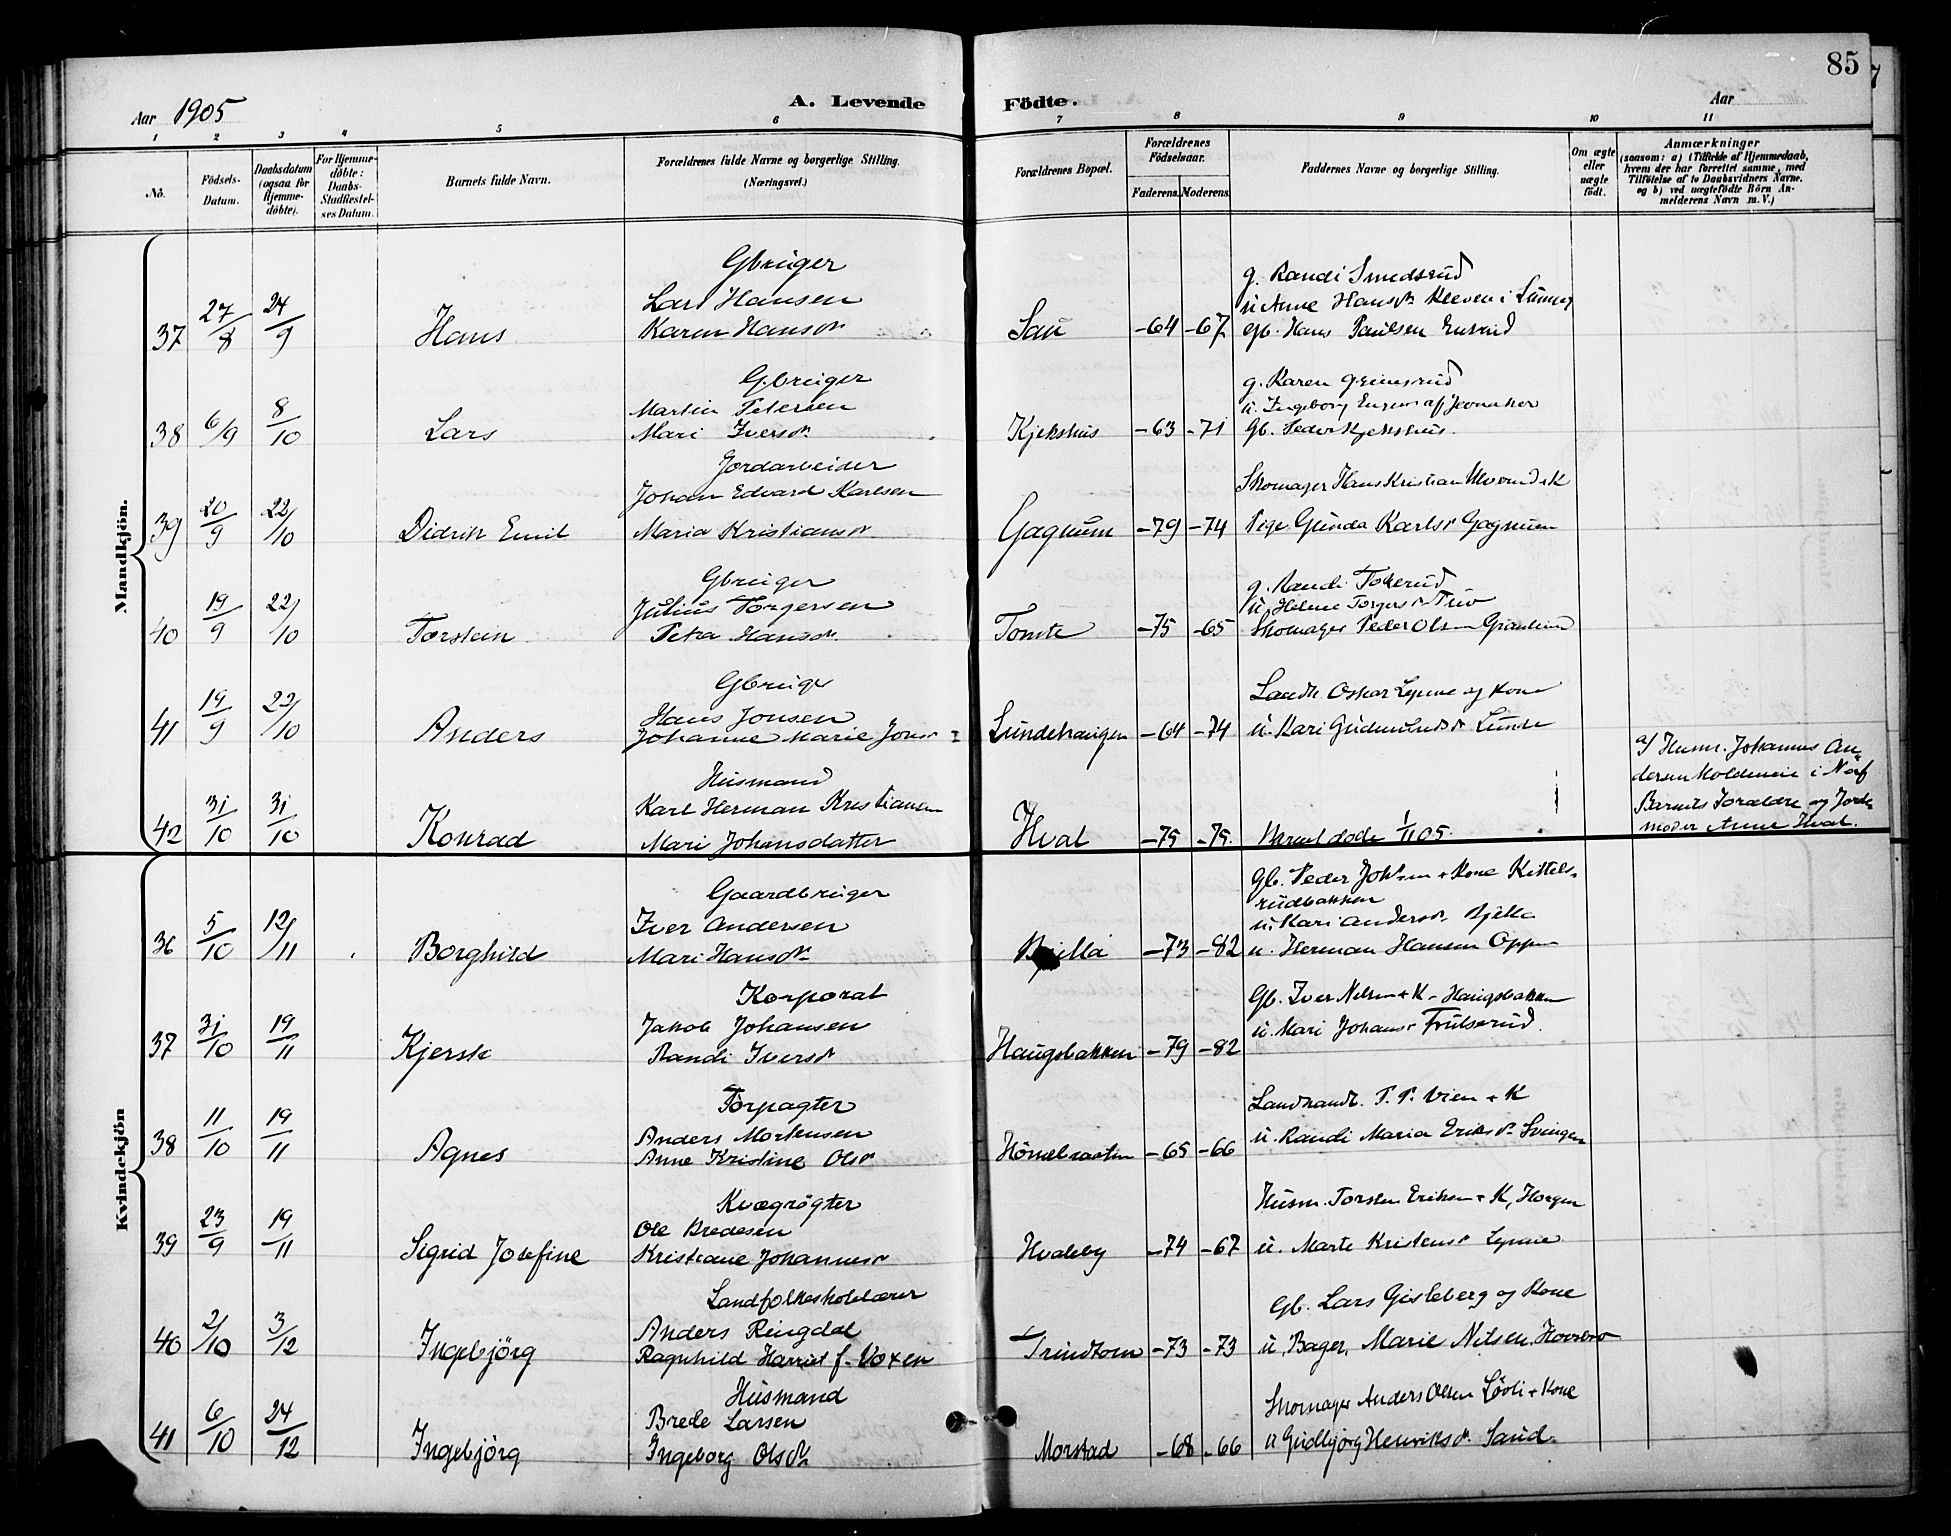 85
Aar 1905
A. Levende Födte.
Aar
1 2 3 4 5 6 7 8 9 10 11
No.
Födsels-
Datum.
Daabsdatum
(ogsaa for
Hjemme-
döbte).
For Hjemme-
döbte:
Daabs-
Stadfæstel-
ses Datum.
Barnets fulde Navn.
Forældrenes fulde Navne og borgerlige Stilling.
(Næringsvei.)
Forældrenes Bopæl.
Forældrenes
Födselsaar.
Faderens. Moderens.
Faddernes Navne og borgerlige Stilling.
Om ægte
eller
uægte
födt.
Anmærkninger
(saasom: a) i Tilfælde af Hjemmedaab,
hvem der har forrettet samme, med
Tilföielse af to Daabsvidners Navne,
og b) ved uægtefödte Börn An-
melderens Navn m. V.)
Mandkjön.
Gbruger
g. Randi Smedsrud
Lars Hansen
u Anne Hansdr Kleven i
37 27/8 24/9 Hans Karen Hansdr Sau -64 -67 Gb. Hans Paulsen
Gbruger
g. Karen Grimsrud
Martin Petersen
u. Ingeborg af Jevnaker
38 6/9 8/10 Lars Mari Iversdr Kjekshus -63 -71 Gb. Peder Kjekshus.
Jordarbeider
Johan Edvard Karlsen
Skomager Hans Kristian + K
39 20/9 22/10 Didrik Emil Maria Kristiansdr Gagnum -79 -74 Pige Gunda Karlsdr Gagnum
Gbruger
g. Randi Tokerud
Julius Torgersen
u. Helene Torgersdr
40 19/9 22/10 Torstein Petra Hansdr Tomte -75 -65 Skomager Peder Olsen
Gbruger
Landh. Oskar Lynne og Kone
Hans Jonsen
41 19/9 22/10 Anders Johanne Marie Jonsdr Lundehaugen -64 -74 u. Kari Gudmundsdr Lunde
Husmand
Karl Herman Kristiansen
42 31/10 31/10 Konrad Mari Johansdatter Hval -75 -75. Barnet döde 1/11 05.
a) Husm. Johannes An-
dersen i
Barnets Forældre og Jorde-
moder Anne Hval.
Kvindekjön
Gaardbruger
Gb. Peder + Kone Kittels-
rudbakken
Iver Andersen
u. Kari Andersdr Bjella
36 5/10 12/11 Borghild Mari Hansdr Bjella -73 -82 u. Herman Hansen Oppen
Korporal
Gb. Iver Nilsen + K - Haugsbakken
Jakob Johansen
u. Mari Johansdr Frulserud.
37 31/10 19/11 Kjersti Randi Iversdr Haugsbakken -79 -82
Forpagter
Landhandl. P. P. Vien + K
Anders Mortensen
u. Randi Maria Eriksdr Svingen
38 11/10 19/11 Agnes Anne Kristine Olsdr -65 -66
Kvægrögter
Husm. Torsten Eriksen + K, Horgen
Ole Bredesen
39 23/9 19/11 Sigrid Josefine Kristiane Johannesdr Hvaleby -74 -67 u. Marte Kristensdr Lynne
Landfolkeskolelærer
Gb. Lars Gisleberg og Kone
Anders Ringdal
40 2/10 3/12 Ingebjörg Ragnhild Harriet f. Voxen Trindtom -73 -73 u, Bager, Marie Nilsen,
Husmand
Skomager Anders Olsen Lövli + Kone
Brede Larsen
41 6/10 24/12 Ingebjörg Ingeborg Olsdr Morstad -68 -66 u Gudbjörg Henriksdr Sand.